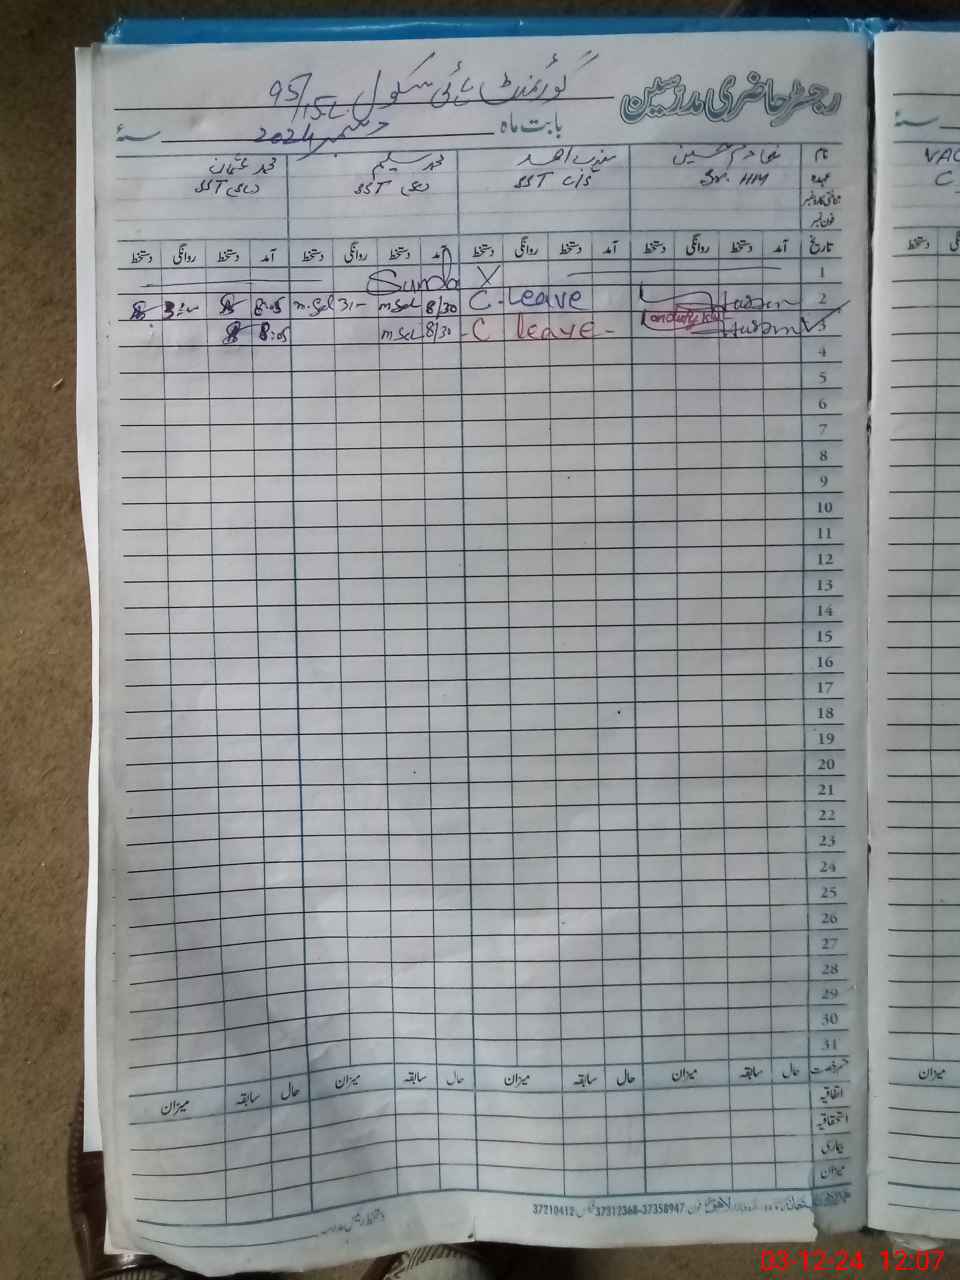 رجسٹر حاضری مدرسین
گورنمنٹ ہائی سکول 95/15-L
بابت ماہ دسمبر 2024 سنہ
نام خادم حسین محمد سلیم محمد عثمان
عہدہ Sr. HM SST C/S SST SST
فون نمبر
تاریخ آمد دستخط روانگی دستخط آمد دستخط روانگی دستخط آمد دستخط روانگی دستخط آمد دستخط روانگی دستخط
1 Sunday
2 Hassan C-Leave 8/30 8:05
3 on duty Hassan C leave 8/30 8:05
4
5
6
7
8
9
10
11
12
13
14
15
16
17
18
19
20
21
22
23
24
25
26
27
28
29
30
31
رخصت حال سابقہ میزان حال سابقہ میزان حال سابقہ میزان حال سابقہ میزان
اتفاقیہ
استحقاقیہ
بیماری
میزان
37210412 37312368-37358947
VAC
C
دستخط
میزان
03-12-24 12:07